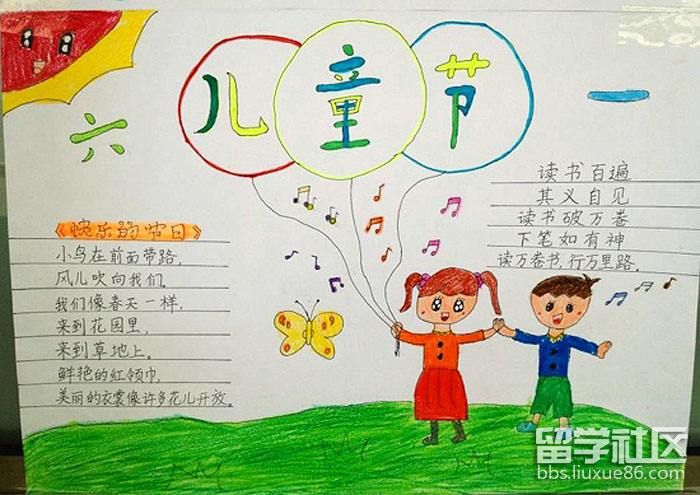 六
儿童节
一
《快乐的节日》
小鸟在前面带路，
风儿吹向我们。
我们像春天一样，
来到花园里，
来到草地上。
鲜艳的红领巾，
美丽的衣裳像许多花儿开放。
读书百遍
其义自见
读书破万卷
下笔如有神
读万卷书，行万里路。
留学社区
bbs.liuxue86.com